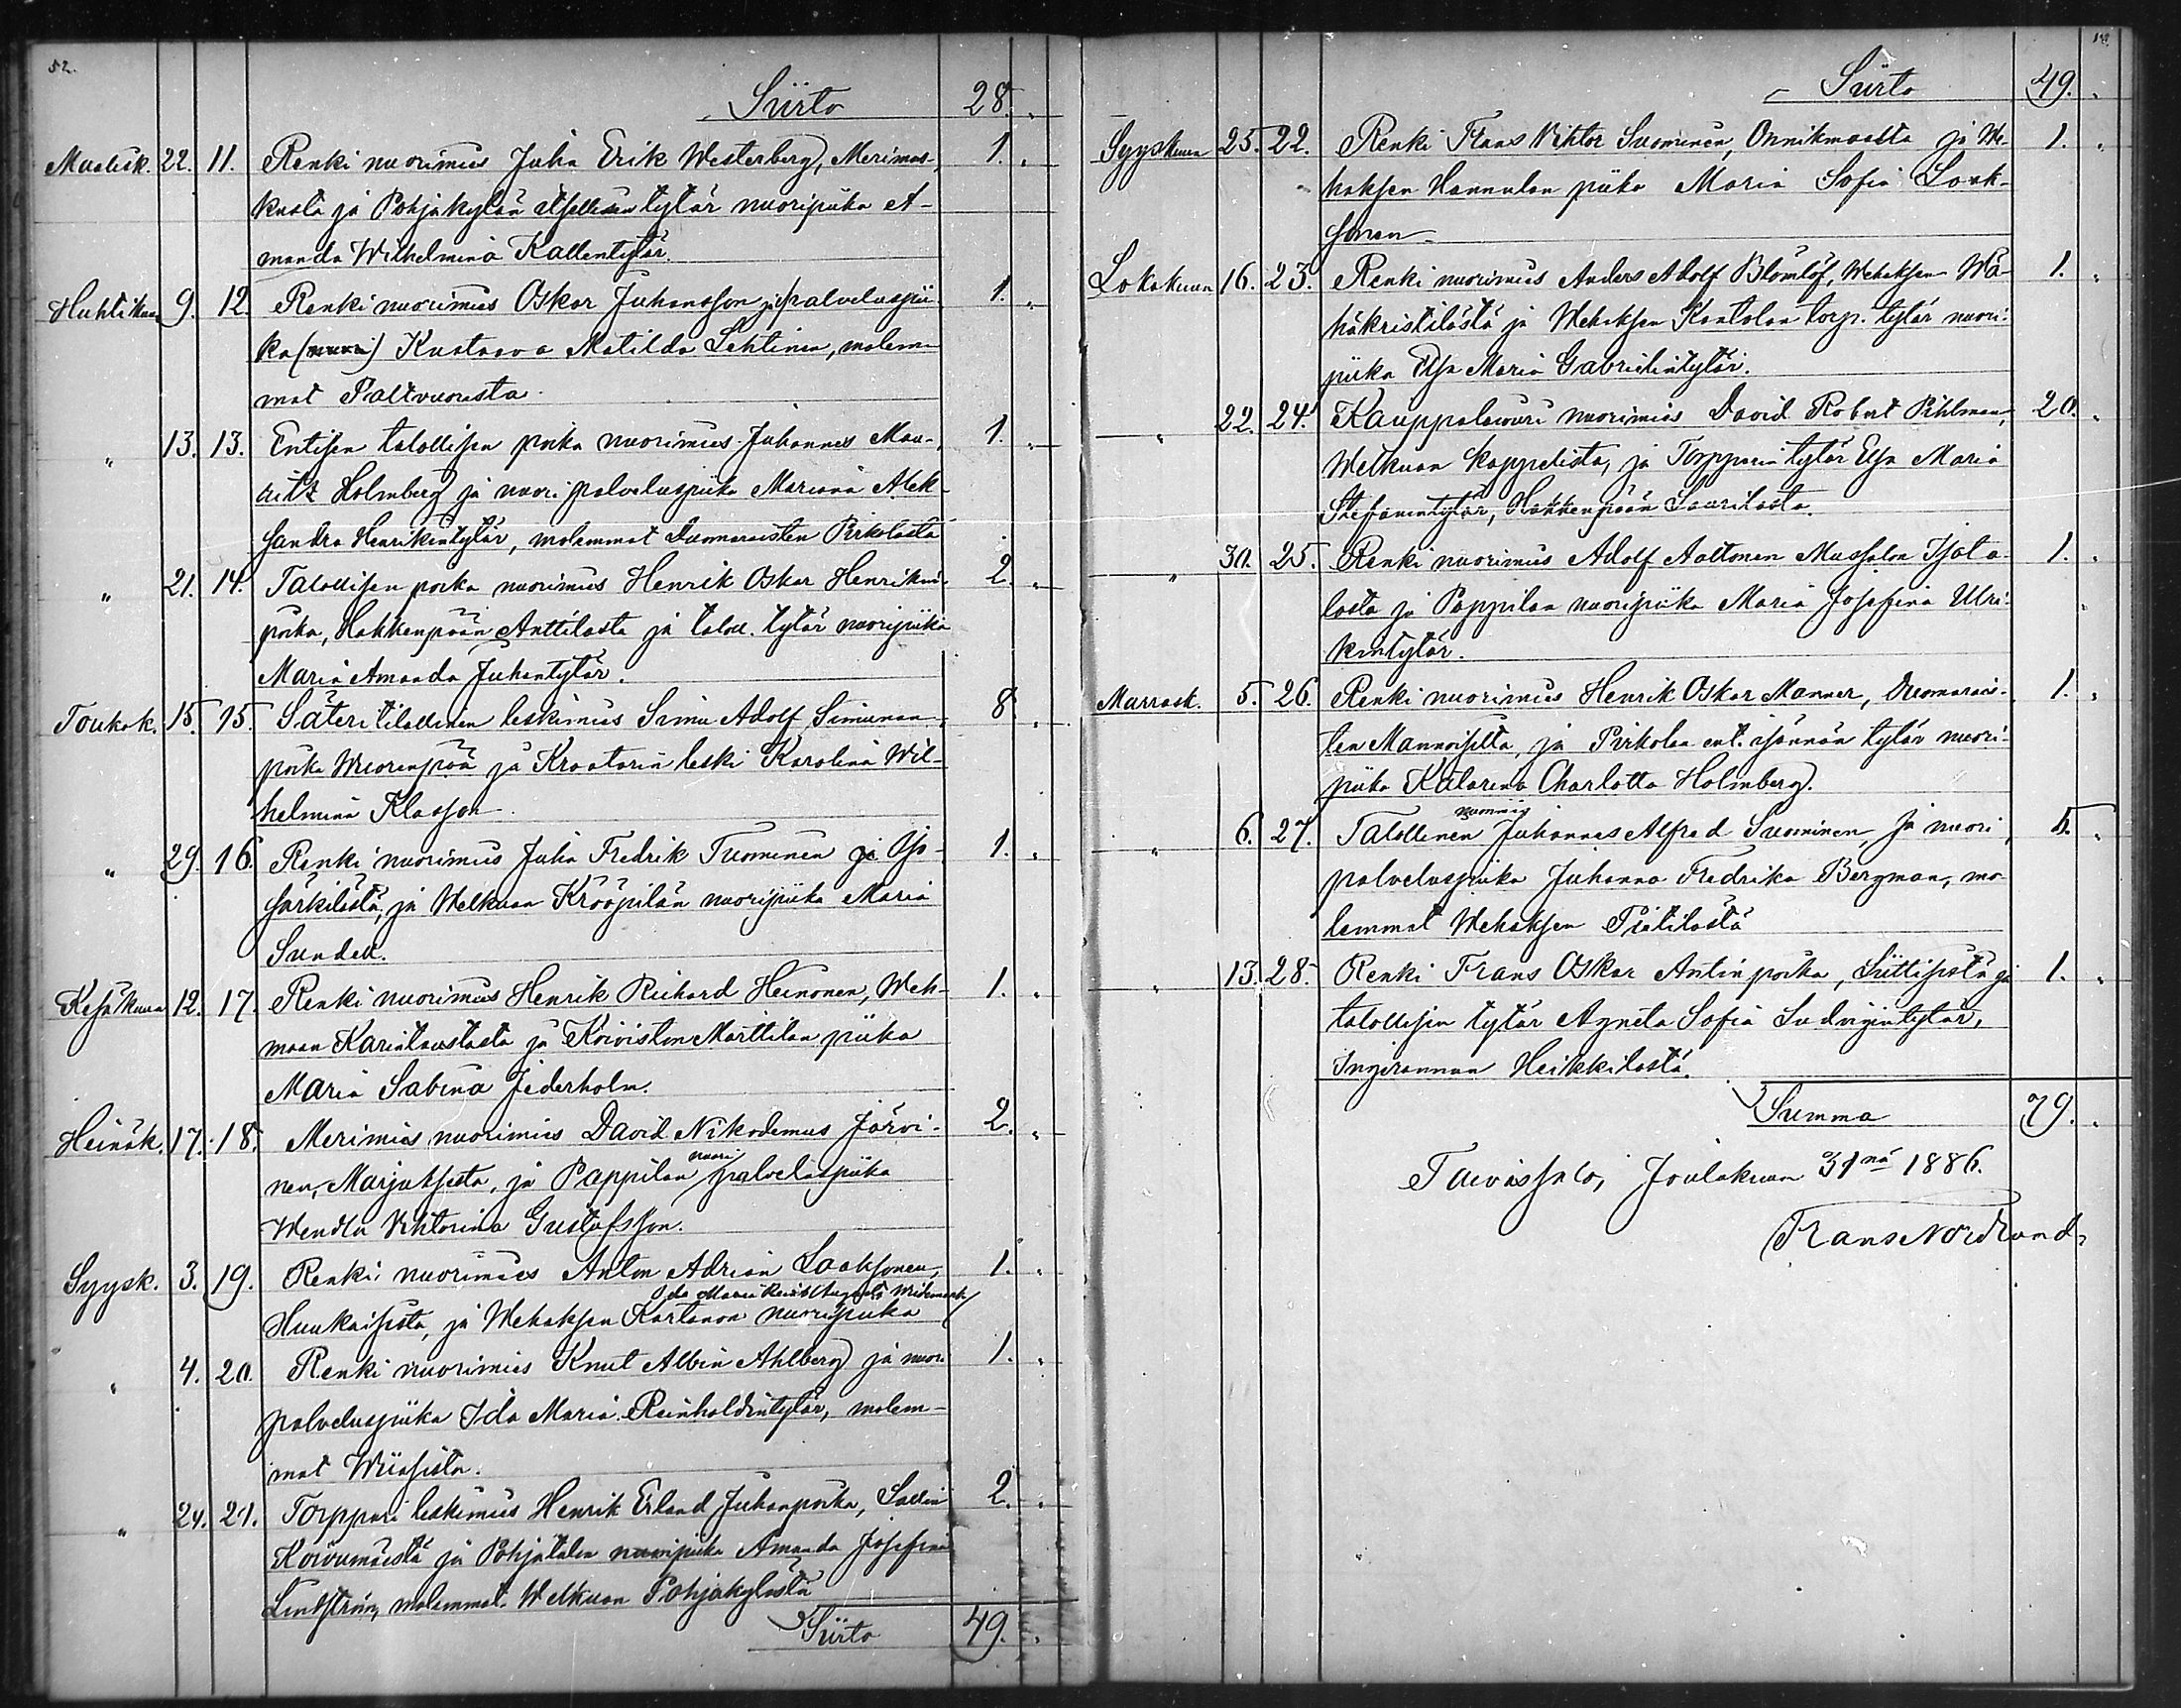 52.
Siirto 28. "
Maalisk. 22. 11. Renki nuorimies Juha Erik Westerberg, Merimas- 1. "
kusta ja Pohjakylän itsellisen tytär nuoripiika A-
manda Wilhelmina Kallentytär.
Huhtikuun 9. 12. Renki nuorimies Oskar Juhansson ja palveluspii- 1. "
ka (nuori) Kustaava Matilda Lehtinen, molem-
mat Paltvuoresta.
" 13. 13. Entisen talollisen poika nuorimies Johannes Mau- 1. "
ritz Holmberg ja nuori palveluspiika Mariana Alek-
sandra Henrikintytär, molemmat Duomaraisten Pirkolasta
" 21. 14. Talollisen poika nuorimies Henrik Oskar Henrikin- 2. "
poika, Hakkenpään Anttilasta ja taloll. tytär nuoripiika
Maria Amanda Juhantytär.
Toukok. 15. 15. Säteritilallinen leskimies Simu Adolf Simunan- 8. "
poika Wuorenpää ja Kraatarin leski Karolina Wil-
helmina Klasson
" 29. 16. Renki nuorimies Juha Fredrik Tuominen ja Iso- 1. "
särkilästä, ja Welkuan Krööpilän nuoripiika Maria
Sundell.
Kesäkuun 12. 17. Renki nuorimies Henrik Richard Heinonen, Weh- 1. "
maan Karintaustasta ja Koiviston Marttilan piika
Maria Sabina Jederholm.
Heinäk. 17. 18. Merimies nuorimies David Nikodemus Järvi- 2. "
nen, Marjuksista, ja Pappilan nuori palveluspiika
Wendla Viktorina Gustafsson.
Syysk. 3. 19. Renki nuorimies Anton Adrian Laaksonen, 1. "
Huukaisista, ja Wehaksen Kartanon nuoripiika
" 4. 20. Renki nuorimies Knut Albin Ahlberg ja nuori 1. "
palveluspiika Ida Maria Reinholdintytär, molem-
mat Wiiasista.
" 24. 21. Torppari leskimies Henrik Erland Juhanpoika, 2. "
Koivumäestä ja Pohjatalon nuoripiika Amanda Josefina
Lindström, molemmat Welkuan Pohjakylästä
Siirto 49. "
Siirto 49. "
Syyskuun 25. 22. Renki Frans Viktor Suominen, Onnikmaalta ja We- 1. "
haksen Hannulan piika Maria Sofia Laak-
sonen.
Lokakuun 16. 23. Renki nuorimies Anders Adolf Blomlöf, Wehaksen Wä- 1. "
häkristilästä ja Wehaksen Kaatolan torp. tytär nuori-
piika Elsa Maria Gabrielintytär.
" 22. 24. Kauppalaivuri nuorimies David Robert Pihlman, 20. "
Welkuan kappelista, ja Torpparin tytär Elsa Maria
Stefanintytär, Hakkenpään Laurilasta.
" 30. 25. Renki nuorimies Adolf Aaltonen Mussalon Isota- 1. "
losta ja Pappilan nuoripiika Maria Josefina Ulri-
kintytär.
Marrask. 5. 26. Renki nuorimies Henrik Oskar Manner, Duomarais- 1. "
ten Mannoisilta, ja Pirkolan ent. isännän tytär nuori-
piika Katarina Charlotta Holmberg.
" 6. 27. Talollinen nuormies Juhannes Alfred Suominen, ja nuori 5. "
palveluspiika Juhanna Fredrika Bergman, mo-
lemmat Wehaksen Pietilästä
" 13. 28. Renki Frans Oskar Antinpoika, ja 1. "
talollisen tytär Agneta Sofia Ludvigintytär,
Ingirannan Heikkilästä.
Summa 79. "
Taivassalo, Joulukuun 31nä 1886.
Frans Nordlund